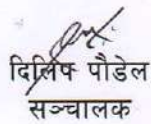 दिलिप पौडेल
सञ्चालक